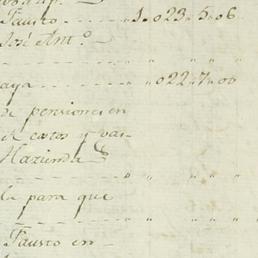 Fausto - - - - - 1 o 23 „ 5 „ 06
José Antº.
- - - - - - - - „ „ „
aya - - - - - - - o 22 „ 7 „ 00
de pensiones en
estos y
Hazienda
- - - - - - - - „ „ „
para que
- - - - - - - - „ „ „
Fausto en